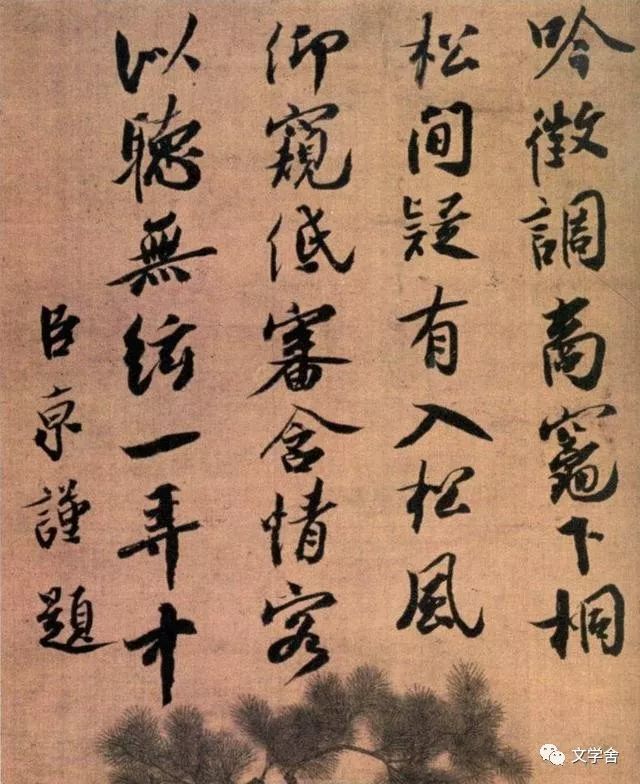 吟徵調商竈下桐
松間疑有入松風
仰窺低審含情客
以聽無絃一弄中
臣京謹題
文学舍